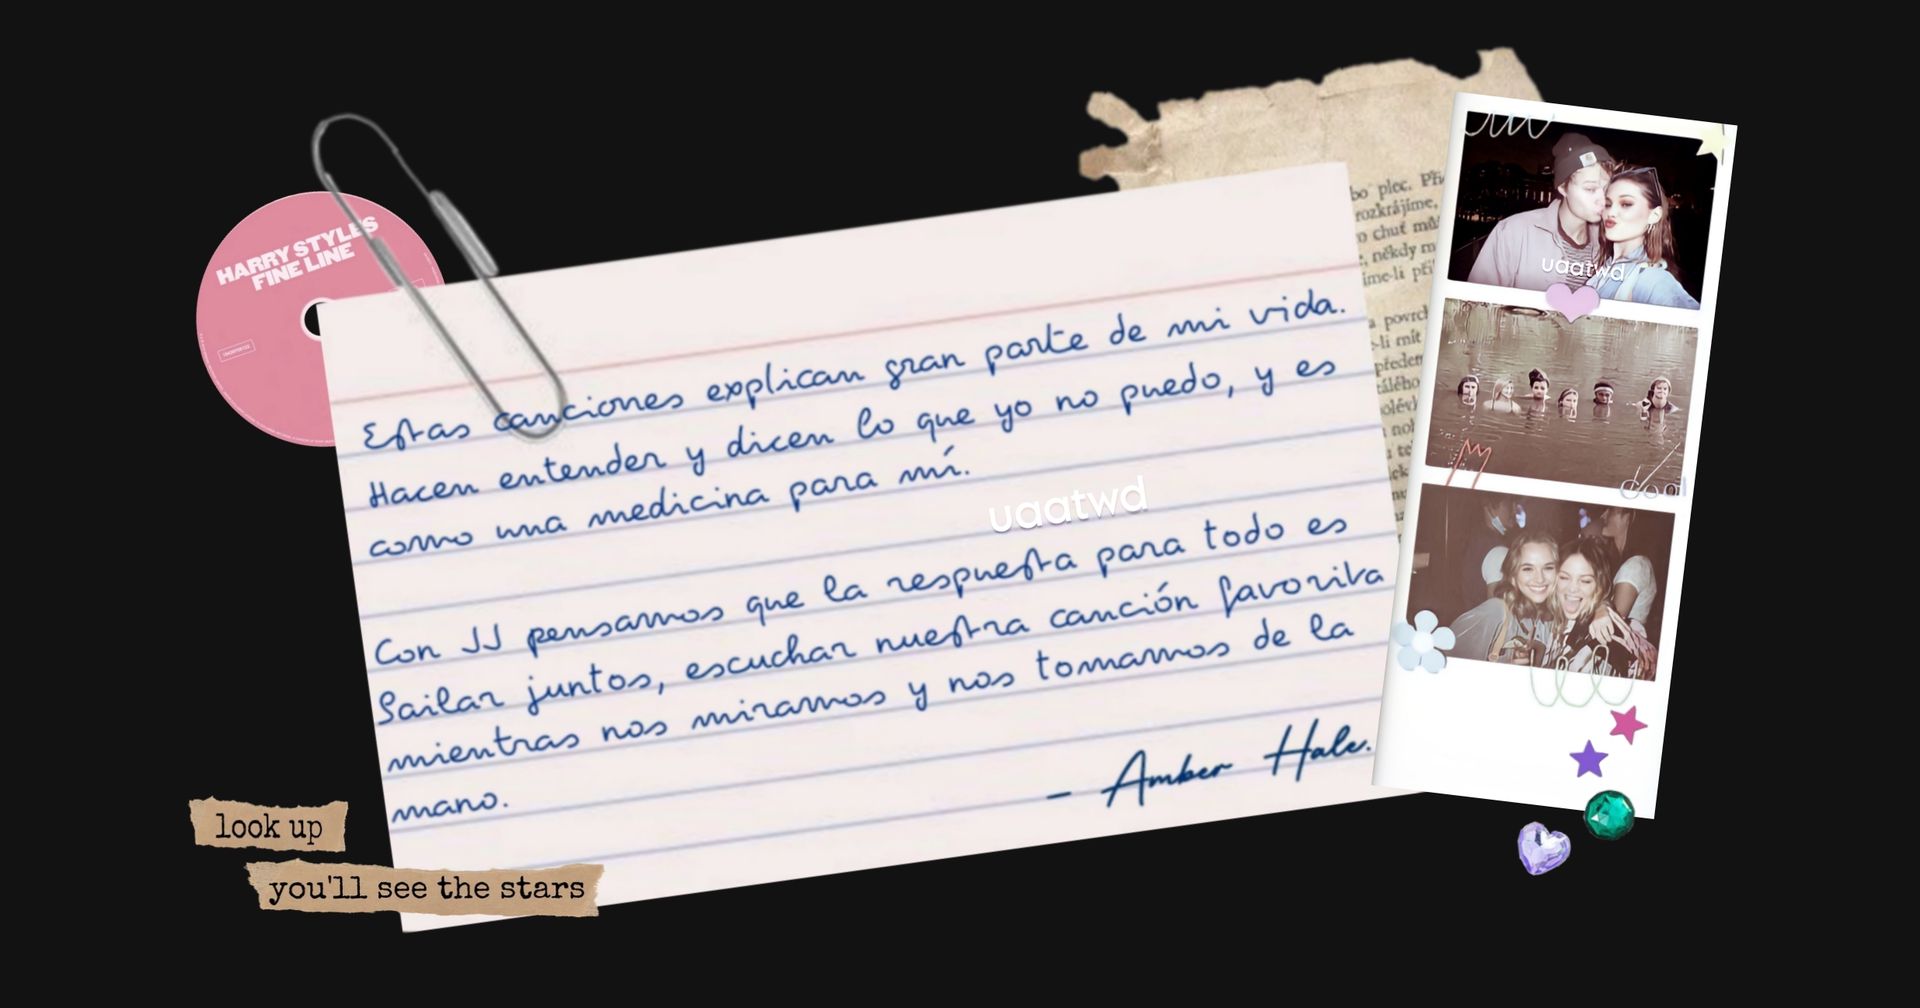 HARRY STYLES
FINE LINE
Estas canciones explican gran parte de mi vida.
Hacen entender y dicen lo que yo no puedo, y es
como una medicina para mí.
uaatwd
Con JJ pensamos que la respuesta para todo es
Bailar juntos, escuchar nuestra canción favorita
mientras nos miramos y nos tomamos de la
mano.
- Amber Hale.
look up
you'll see the stars
bo plec. Při
rozkrájíme,
chuť
někdy
íme-li
povrch
li mít
předem
uaatwd
cool